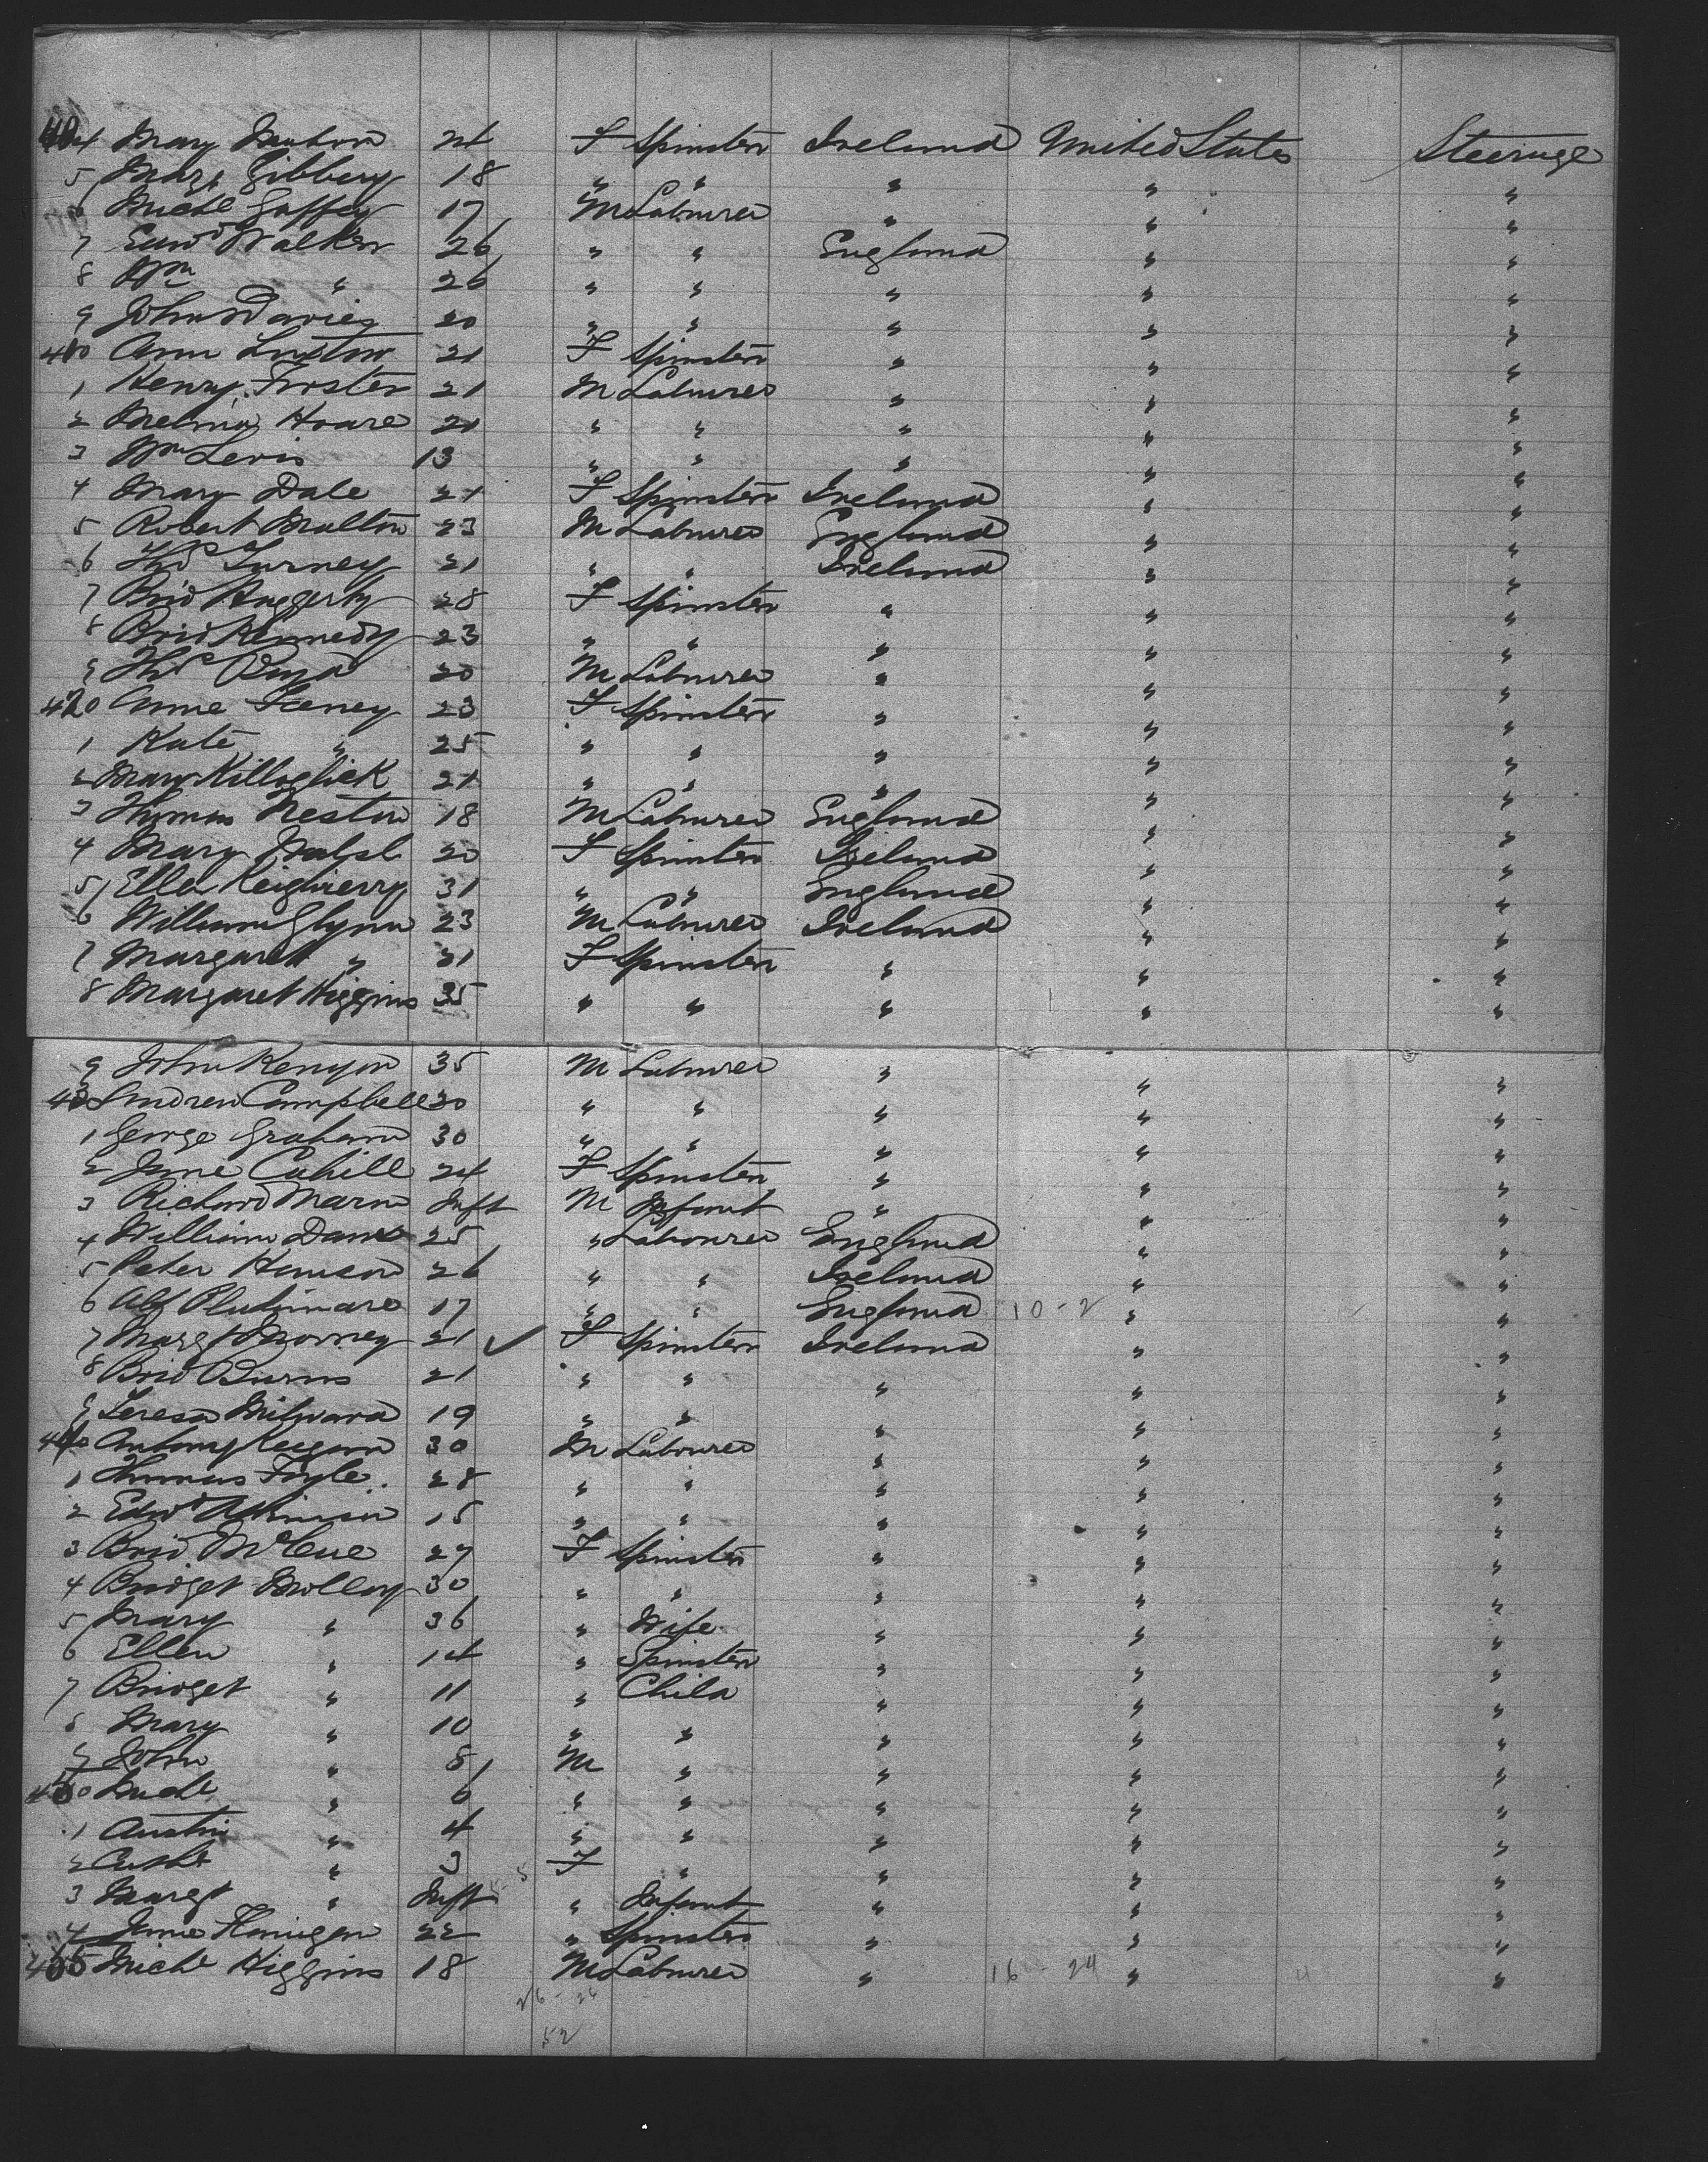 404 Mary 24 F Spinster Ireland United States Steerage
5 Mary Gibbery 18 " " " " "
6 Michl Gaffey 17 M Labourer " " "
7 Edwd Walker 26 " " England " "
8 Wm " 26 " " " " "
9 John Davies 20 " " " " "
410 Ann 21 F Spinster " " "
1 Henry Froster 21 M Labourer " " "
2 Hoare 21 " " " " "
3 Wm Levis 13 " " " " "
4 Mary Dale 21 F Spinster Ireland " "
5 Robert Multon 23 M Labourer England " "
6 Thos Turney 21 " " Ireland " "
7 Brid Haggerty 28 F Spinster " " "
8 Brid Kennedy 23 " " " " "
9 Thos 20 M Labourer " " "
420 Anne Feney 23 F Spinster " " "
1 Kate " 25 " " " " "
2 Mary 21 " " " " "
3 Thomas Neston 18 M Labourer England " "
4 Mary Walsh 20 F Spinster Ireland " "
5 Ellen 31 " " England " "
6 William Glynn 23 M Labourer Ireland " "
7 Margaret " 31 F Spinster " " "
8 Margaret Higgins 35 " " " " "
9 John Kenyon 35 M Labourer " " "
430 Andrew Campbell 30 " " " " "
1 George Graham 30 " " " " "
2 Jane Cahill 24 F Spinster " " "
3 Richard Marn Inft M Infant " " "
4 William Dans 25 " Labourer England " "
5 Peter 26 " " Ireland " "
6 Alf 17 " " England 10-2 " "
7 Margt Morney 21 ✓ F Spinster Ireland " "
8 Brid Burns 21 " " " " "
9 Teresa Milward 19 " " " " "
440 Antony Keegan 30 M Labourer " " "
1 Thomas Foyle 28 " " " " "
2 Edwd Atkinson 15 " " " " "
3 Brid McCue 27 F Spinster " " "
4 Bridget Molloy 30 " " " " "
5 Mary " 36 " Wife " " "
6 Ellen " 14 " Spinster " " "
7 Bridget " 11 " Child " " "
8 Mary " 10 " " " " "
9 John " 8 M " " " "
450 Michl " 6 " " " " "
1 Austin " 4 " " " " "
2 Cathe " 3 F " " " "
3 Margt " Inft " Infant " " "
4 Jane Flanigan 22 " Spinster " " "
455 Michl Higgins 18 M Labourer " 16 - 24 " "
26 - 26
52